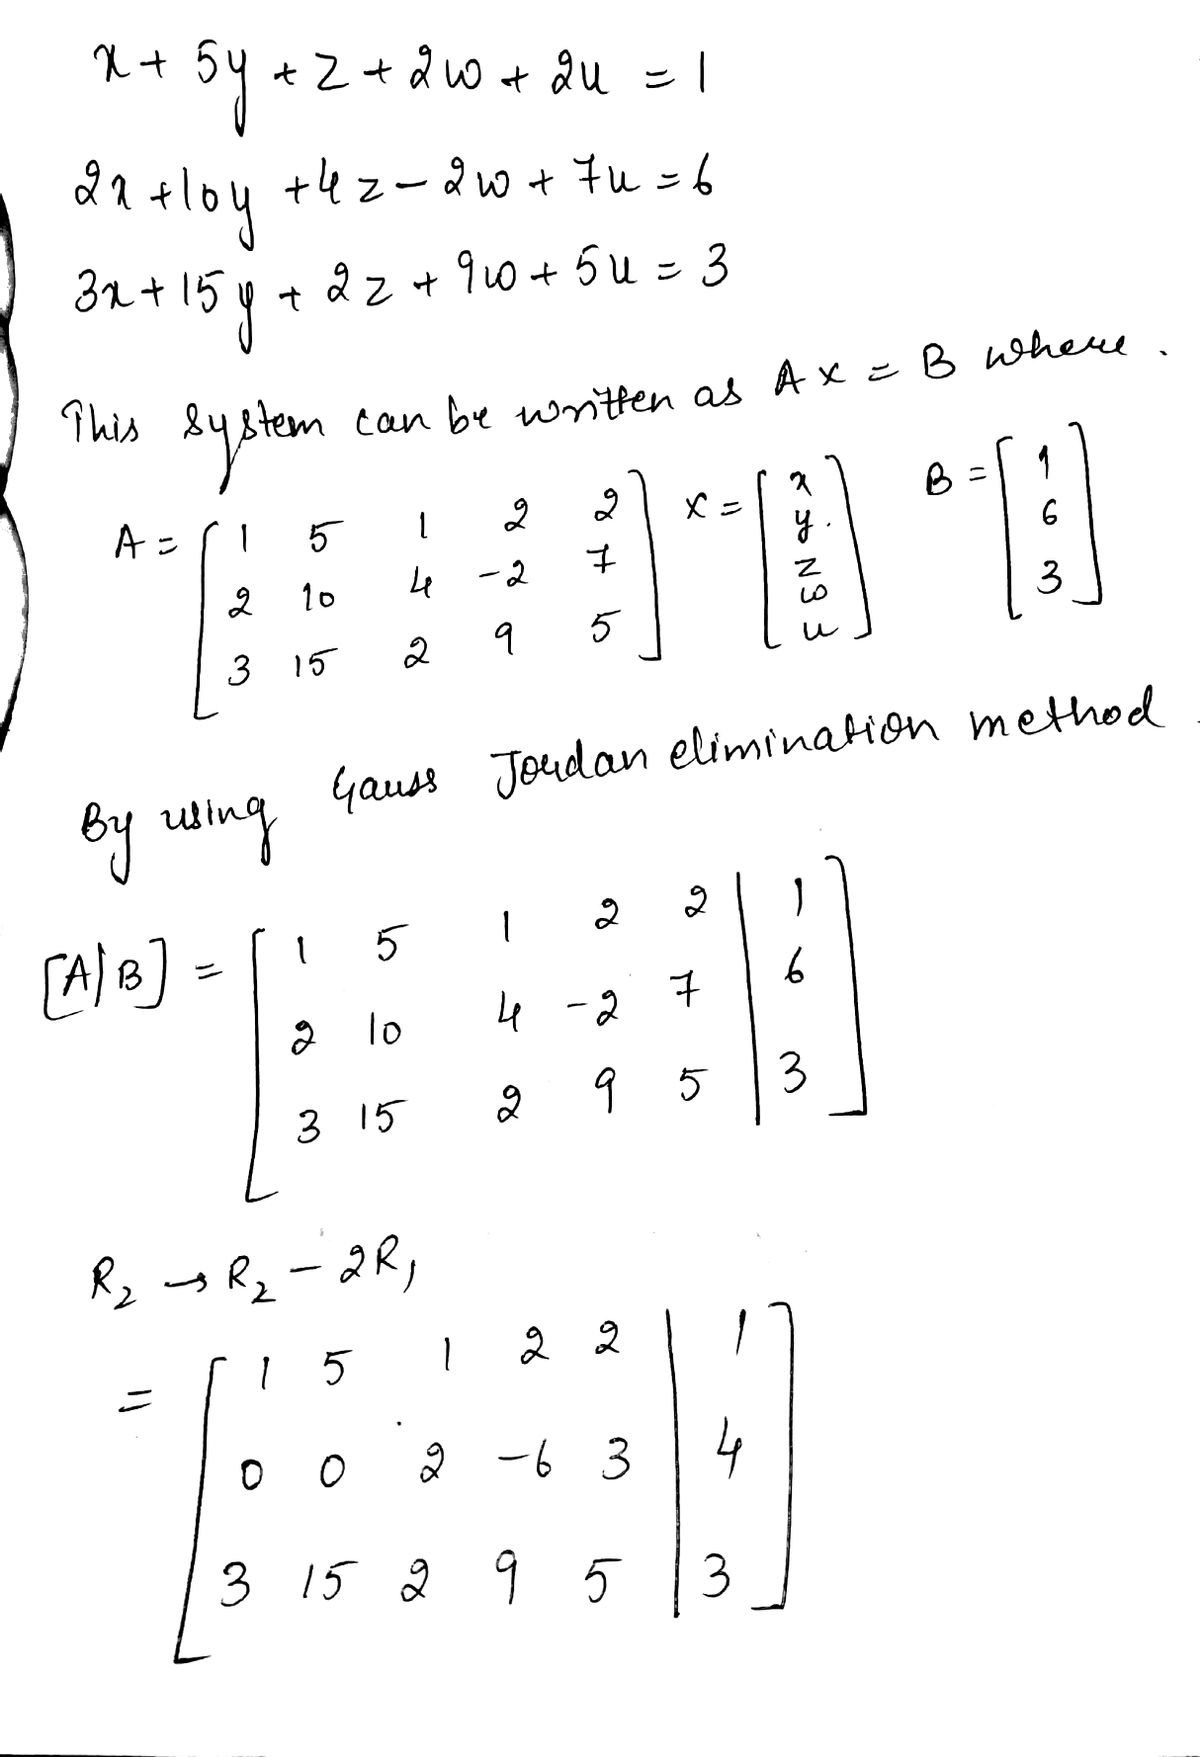 x + 5y + z + 2w + 2u = 1
2x + 10y + 4z - 2w + 7u = 6
3x + 15y + 2z + 9w + 5u = 3
This system can be written as AX = B where.
A = [ 1 5 1 2 2 ] X = [ x ] B = [ 1 ]
[ 2 10 4 -2 7 ] [ y ] [ 6 ]
[ 3 15 2 9 5 ] [ z ] [ 3 ]
[ w ]
[ u ]
By using Gauss Jordan elimination method
[A|B] = [ 1 5 1 2 2 | 1 ]
[ 2 10 4 -2 7 | 6 ]
[ 3 15 2 9 5 | 3 ]
R₂ → R₂ - 2R₁
= [ 1 5 1 2 2 | 1 ]
[ 0 0 2 -6 3 | 4 ]
[ 3 15 2 9 5 | 3 ]